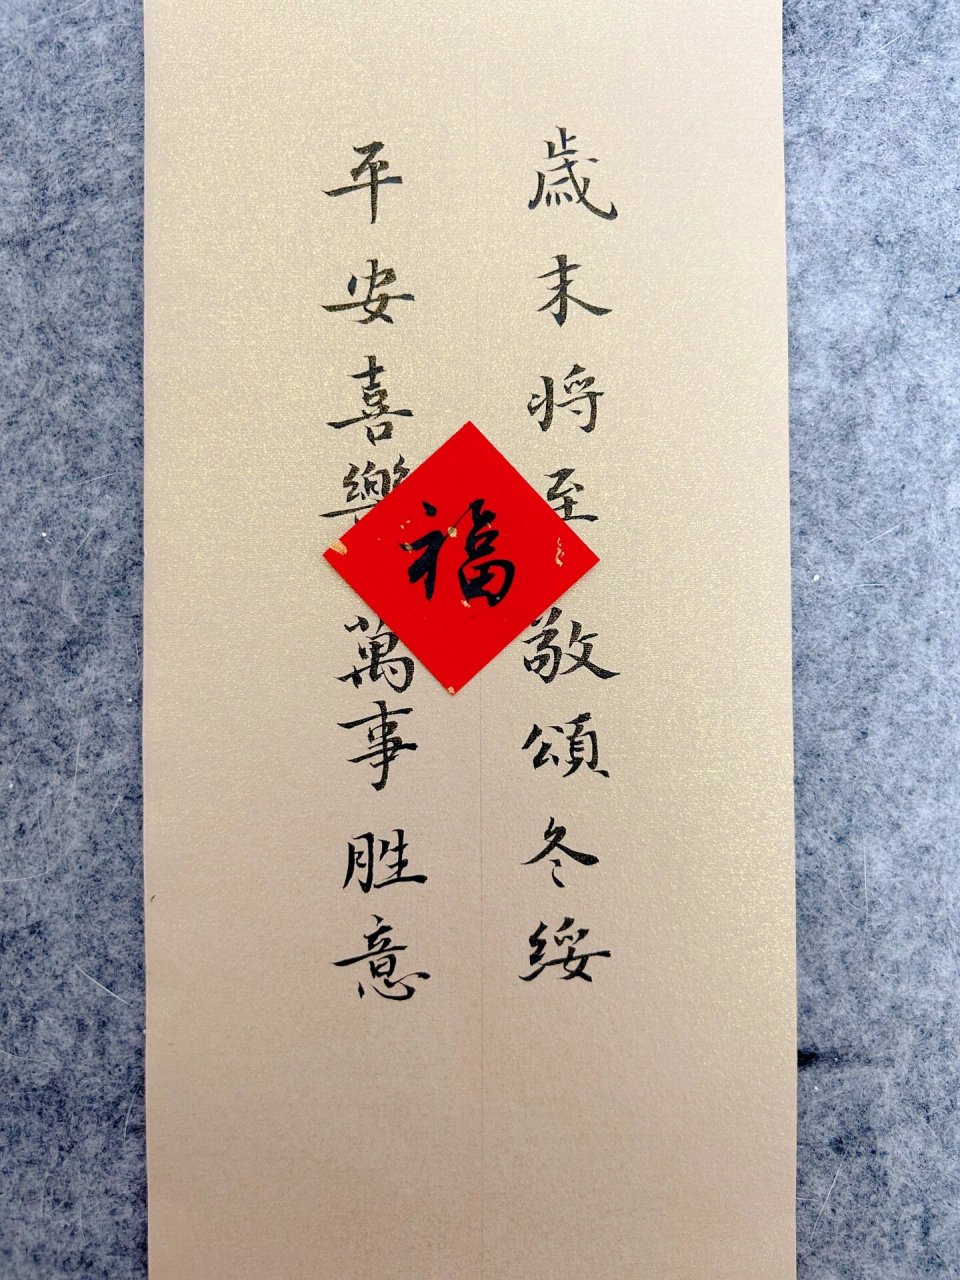 歲末将至敬頌冬綏
平安喜樂萬事胜意
福